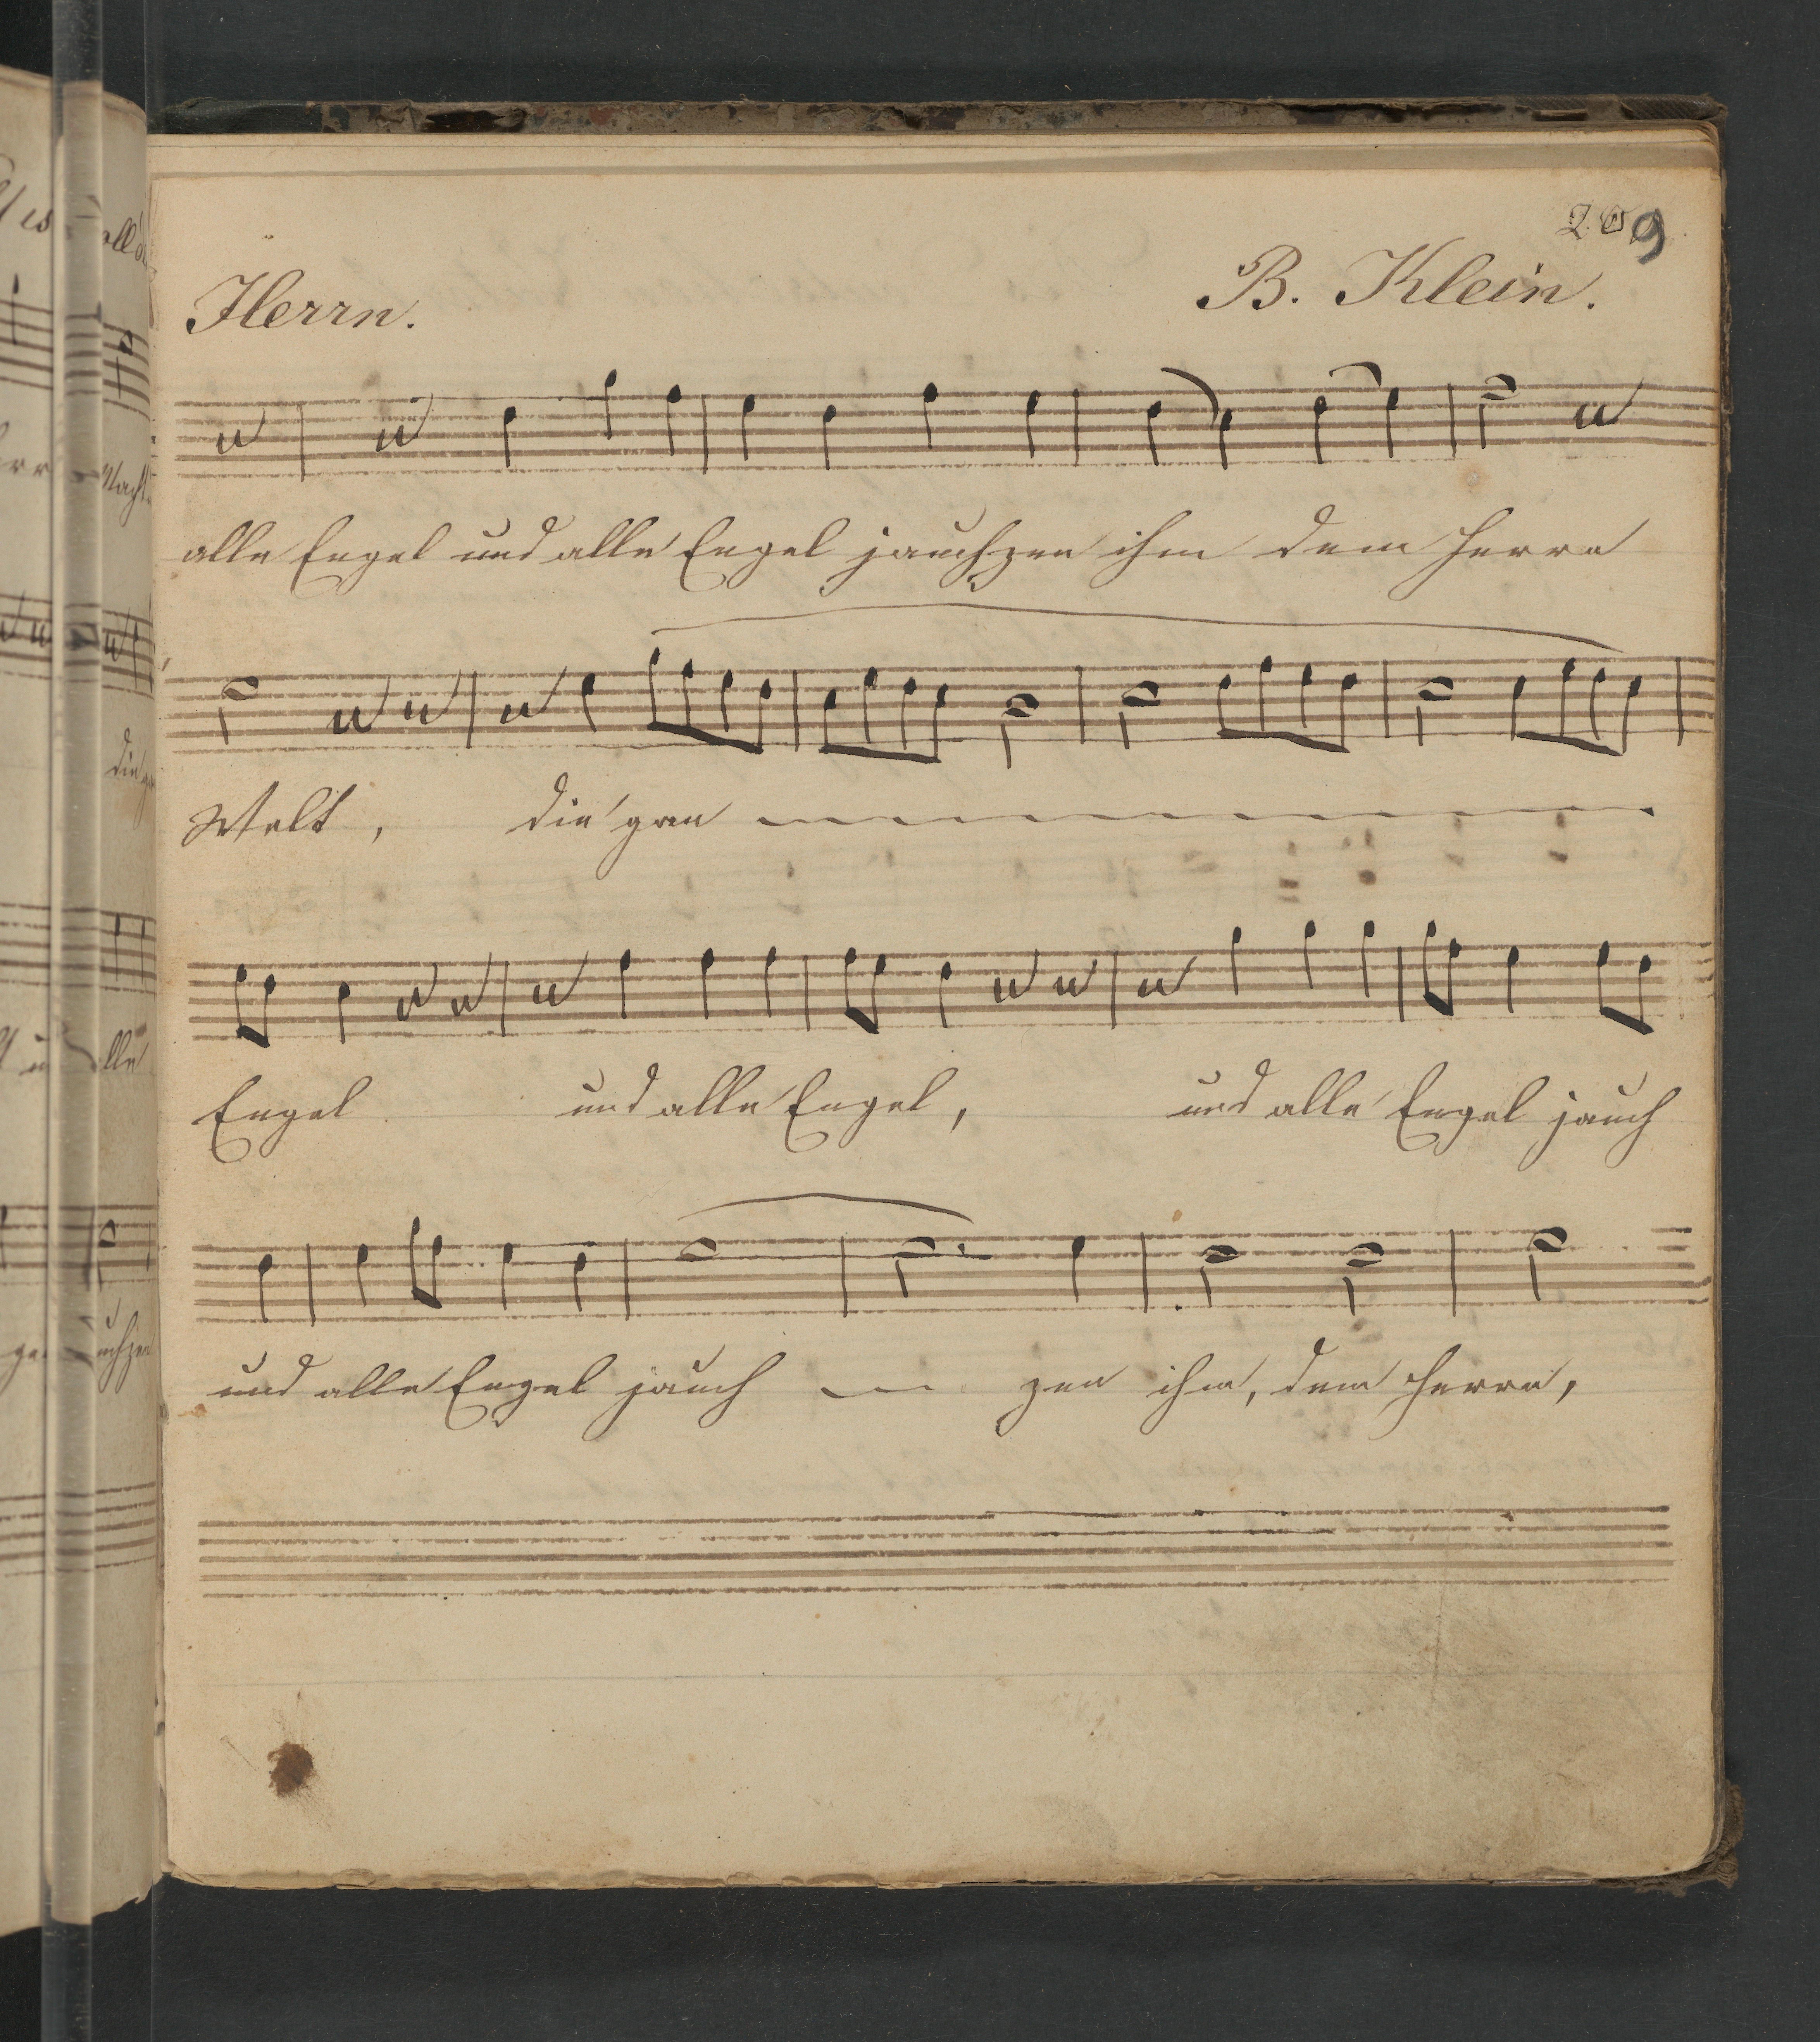 209
Herrn. B. Klein.
alle Engel und alle Engel jauchzen ihm dem Herrn
Welt, die gan
Engel und alle Engel, und alle Engel jauch
und alle Engel jauch zen ihm, dem Herrn,